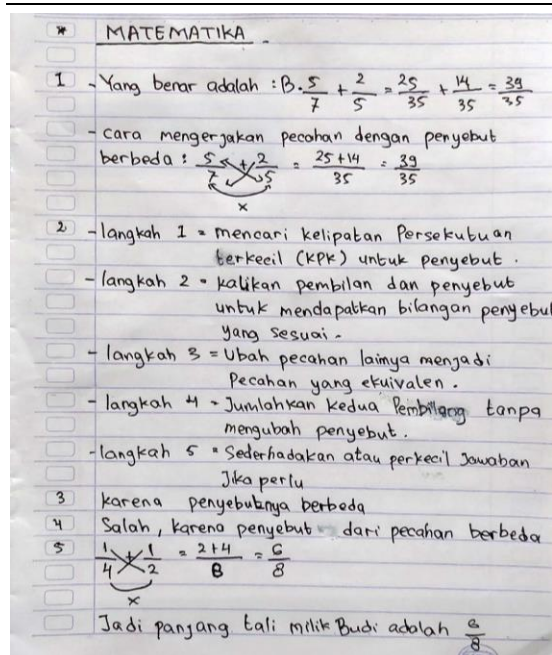 * MATEMATIKA -
1 - Yang benar adalah : B. 5/7 + 2/5 = 25/35 + 14/35 = 39/35
- cara mengerjakan pecahan dengan penyebut
berbeda : 5/7 + 2/5 = 25+14/35 = 39/35
x
2 - langkah 1 = mencari kelipatan Persekutuan
terkecil (KPK) untuk penyebut .
- langkah 2 = kalikan pembilan dan penyebut
untuk mendapatkan bilangan penyebut
yang sesuai -
- langkah 3 = Ubah pecahan lainya menjadi
Pecahan yang ekuivalen .
- langkah 4 = Jumlahkan kedua Pembilang tanpa
mengubah penyebut .
- langkah 5 = Sederhadakan atau perkecil Jawaban
Jika perlu
3 karena penyebutnya berbeda
4 Salah, karena penyebut dari pecahan berbeda
5 1/4 + 1/2 = 2+4/8 = 6/8
x
Jadi panjang tali milik Budi adalah 6/8